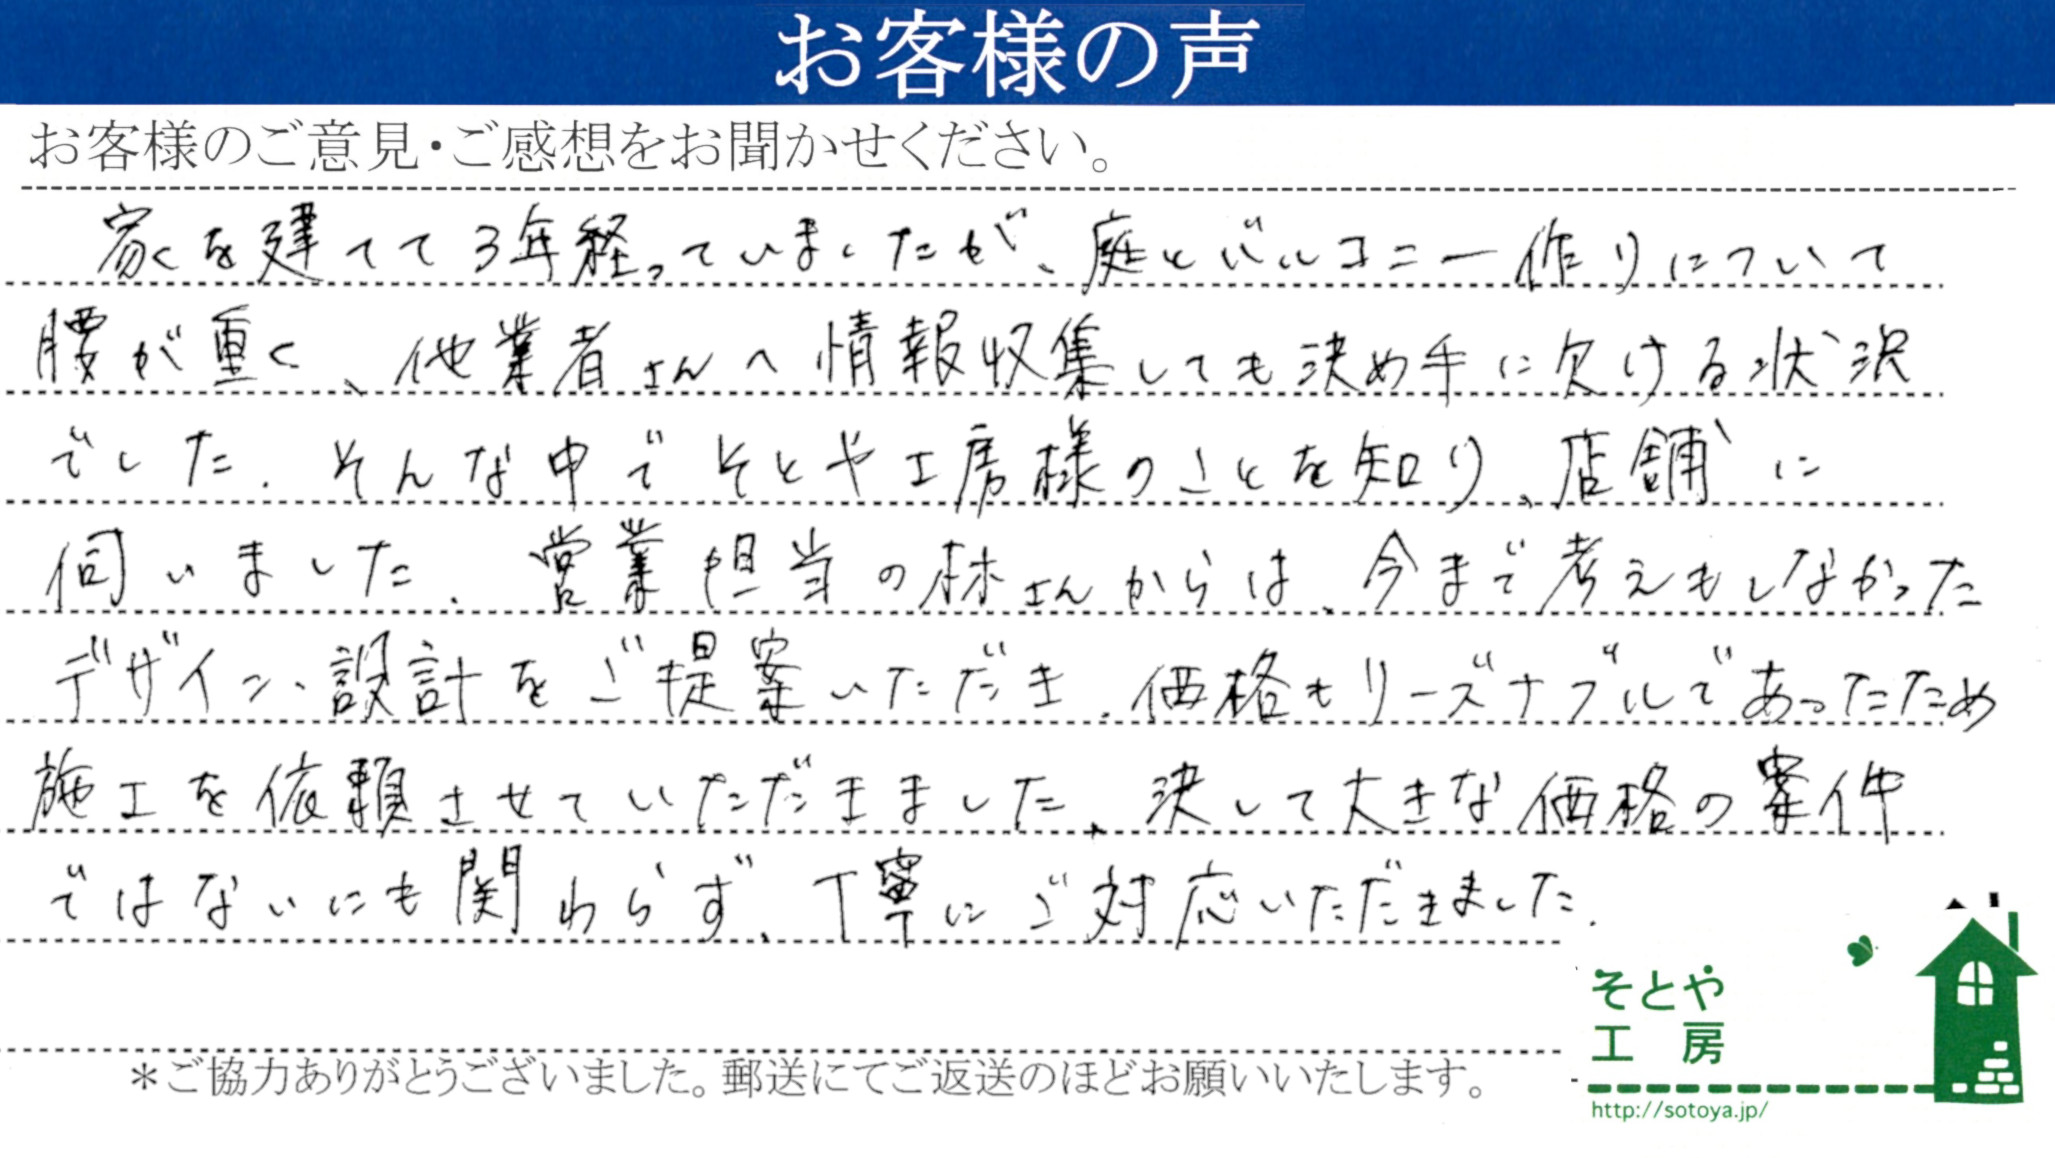 お客様の声
お客様のご意見・ご感想をお聞かせください。
家を建てて3年経っていましたが、庭とバルコニー作りについて
腰が重く、他業者さんへ情報収集しても決め手に欠ける状況
でした。そんな中でそとや工房様のことを知り、店舗に
伺いました。営業担当の林さんからは、今まで考えもしなかった
デザイン、設計をご提案いただき、価格もリーズナブルであったため
施工を依頼させていただきました。決して大きな価格の案件
ではないにも関わらず、丁寧にご対応いただきました。
そとや
工房
＊ご協力ありがとうございました。郵送にてご返送のほどお願いいたします。
http://sotoya.jp/